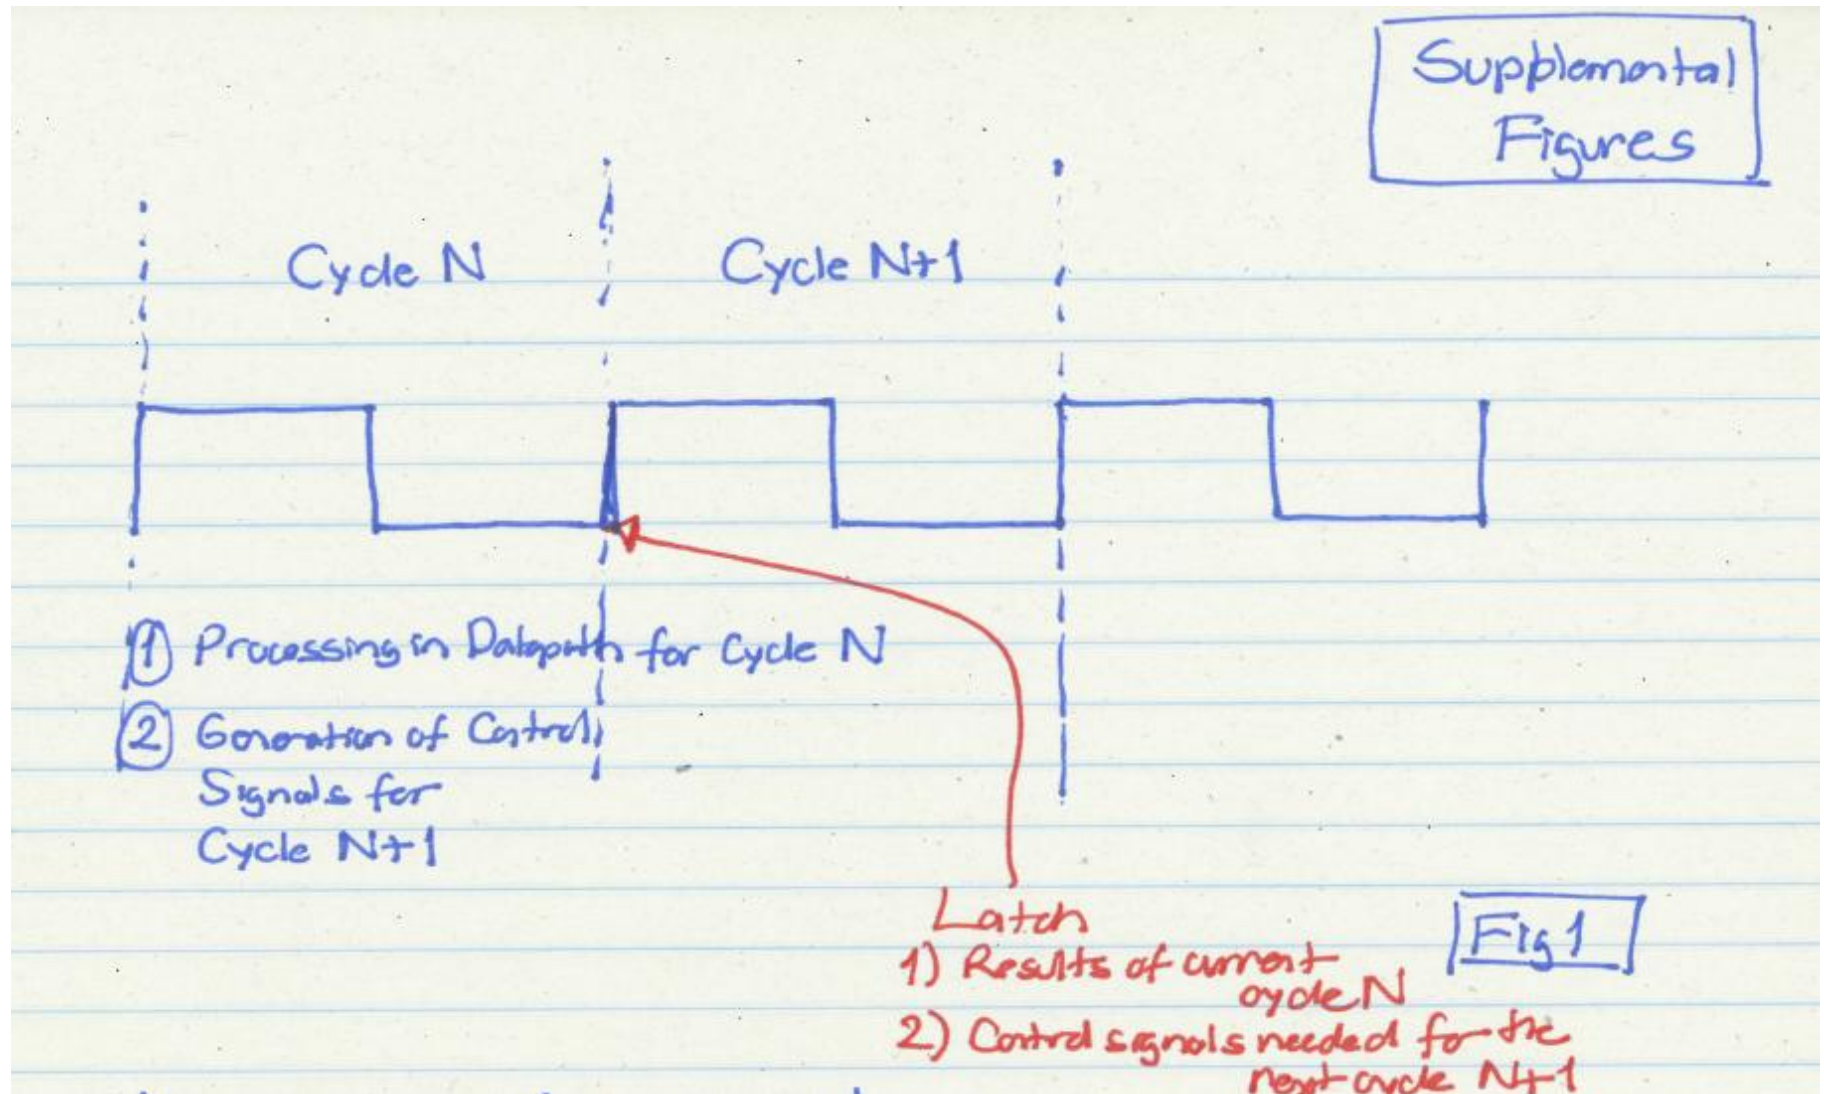 Supplemental
Figures
Cycle N
Cycle N+1
1 Processing in Datapath for Cycle N
2 Generation of Control
Signals for
Cycle N+1
Latch
1) Results of current
cycle N
2) Control signals needed for the
next cycle N+1
Fig 1